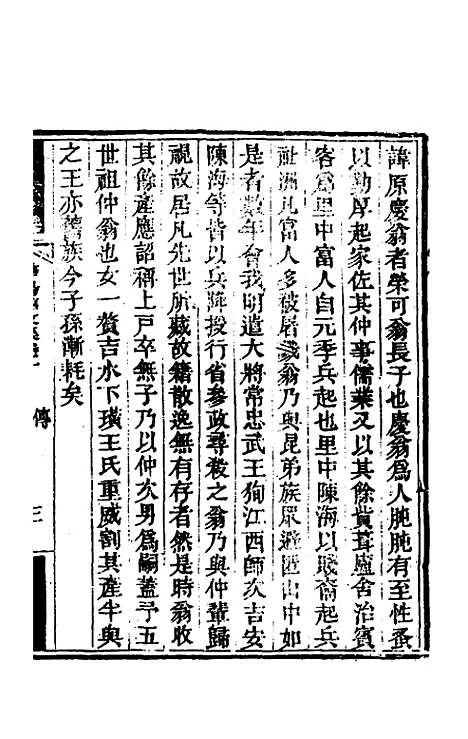 諱原慶翁者榮可翁長子也慶翁爲人肫肫有至性蚤
以勤厚起家佐其仲事儒業又以其餘貲葺廬舍治賓
客爲里中富人自元季兵起也里中陳海以賤裔起兵
祉洲凡富人多被屠戮翁乃與昆弟族眾避匿山中如
是者數年會我明遣大將常忠武王狥江西師次吉安
陳海等皆以兵降投行省參政尋殺之翁乃與仲輩歸
視故居凡先世所藏故籍散逸無有存者然是時翁收
其餘產應詔稱上戶卒無子乃以仲次男爲嗣蓋予五
世祖仲翁也女一贅吉水下璜王氏重威割其產半與
之王亦舊族今子孫漸耗矣
傳
三